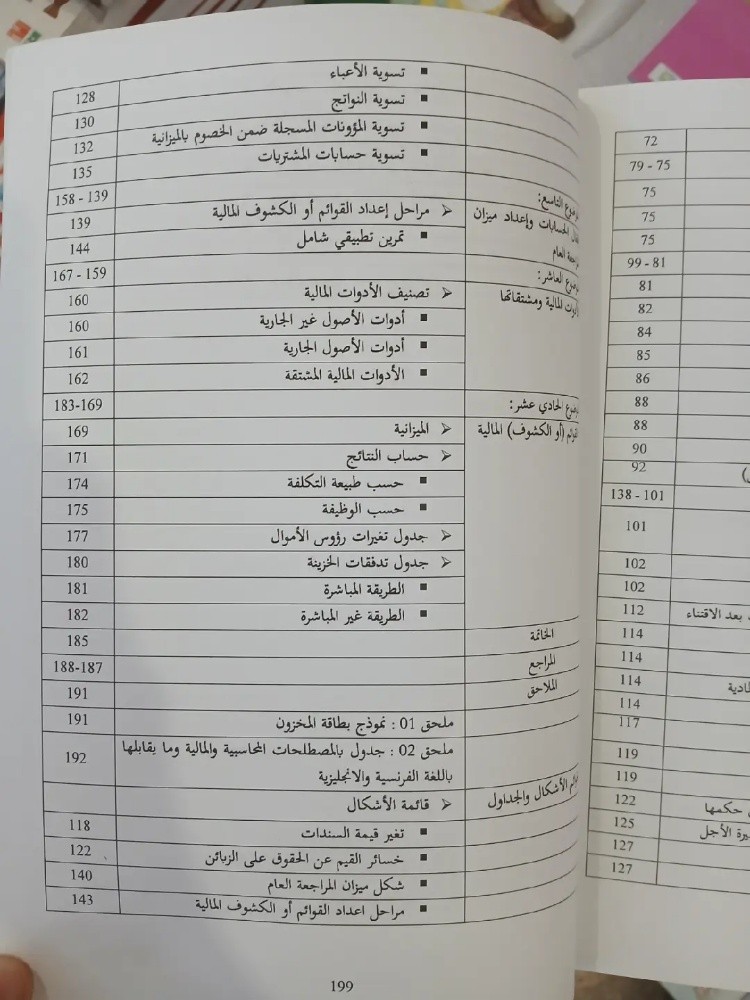 تسوية الأعباء
▪ تسوية النواتج 128
▪ تسوية المؤونات المسجلة ضمن الخصوم بالميزانية 130
▪ تسوية حسابات المشتريات 132
135
التاسع: 158 - 139
الحسابات وإعداد ميزان ➢ مراحل إعداد القوائم أو الكشوف المالية 139
العام ▪ تمرين تطبيقي شامل 144
العاشر: 167 - 159
المالية ومشتقاتها ➢ تصنيف الأدوات المالية 160
▪ أدوات الأصول غير الجارية 160
▪ أدوات الأصول الجارية 161
▪ الأدوات المالية المشتقة 162
الحادي عشر: 183-169
(أو الكشوف) المالية ➢ الميزانية 169
➢ حساب النتائج 171
▪ حسب طبيعة التكلفة 174
▪ حسب الوظيفة 175
➢ جدول تغيرات رؤوس الأموال 177
➢ جدول تدفقات الخزينة 180
▪ الطريقة المباشرة 181
▪ الطريقة غير المباشرة 182
الخاتمة 185
المراجع 188-187
الملاحق 191
ملحق 01 : نموذج بطاقة المخزون 191
ملحق 02 : جدول بالمصطلحات المحاسبية والمالية وما يقابلها 192
باللغة الفرنسية والانجليزية
الأشكال والجداول ➢ قائمة الأشكال
▪ تغير قيمة السندات 118
▪ خسائر القيم عن الحقوق على الزبائن 122
▪ شكل ميزان المراجعة العام 140
▪ مراحل اعداد القوائم أو الكشوف المالية 143
199
72
79 - 75
75
75
75
99 - 81
81
82
84
85
86
88
88
90
92
138 - 101
101
102
102
بعد الاقتناء 112
114
114
114
114
117
119
119
حكمها 122
الأجل 125
127
127